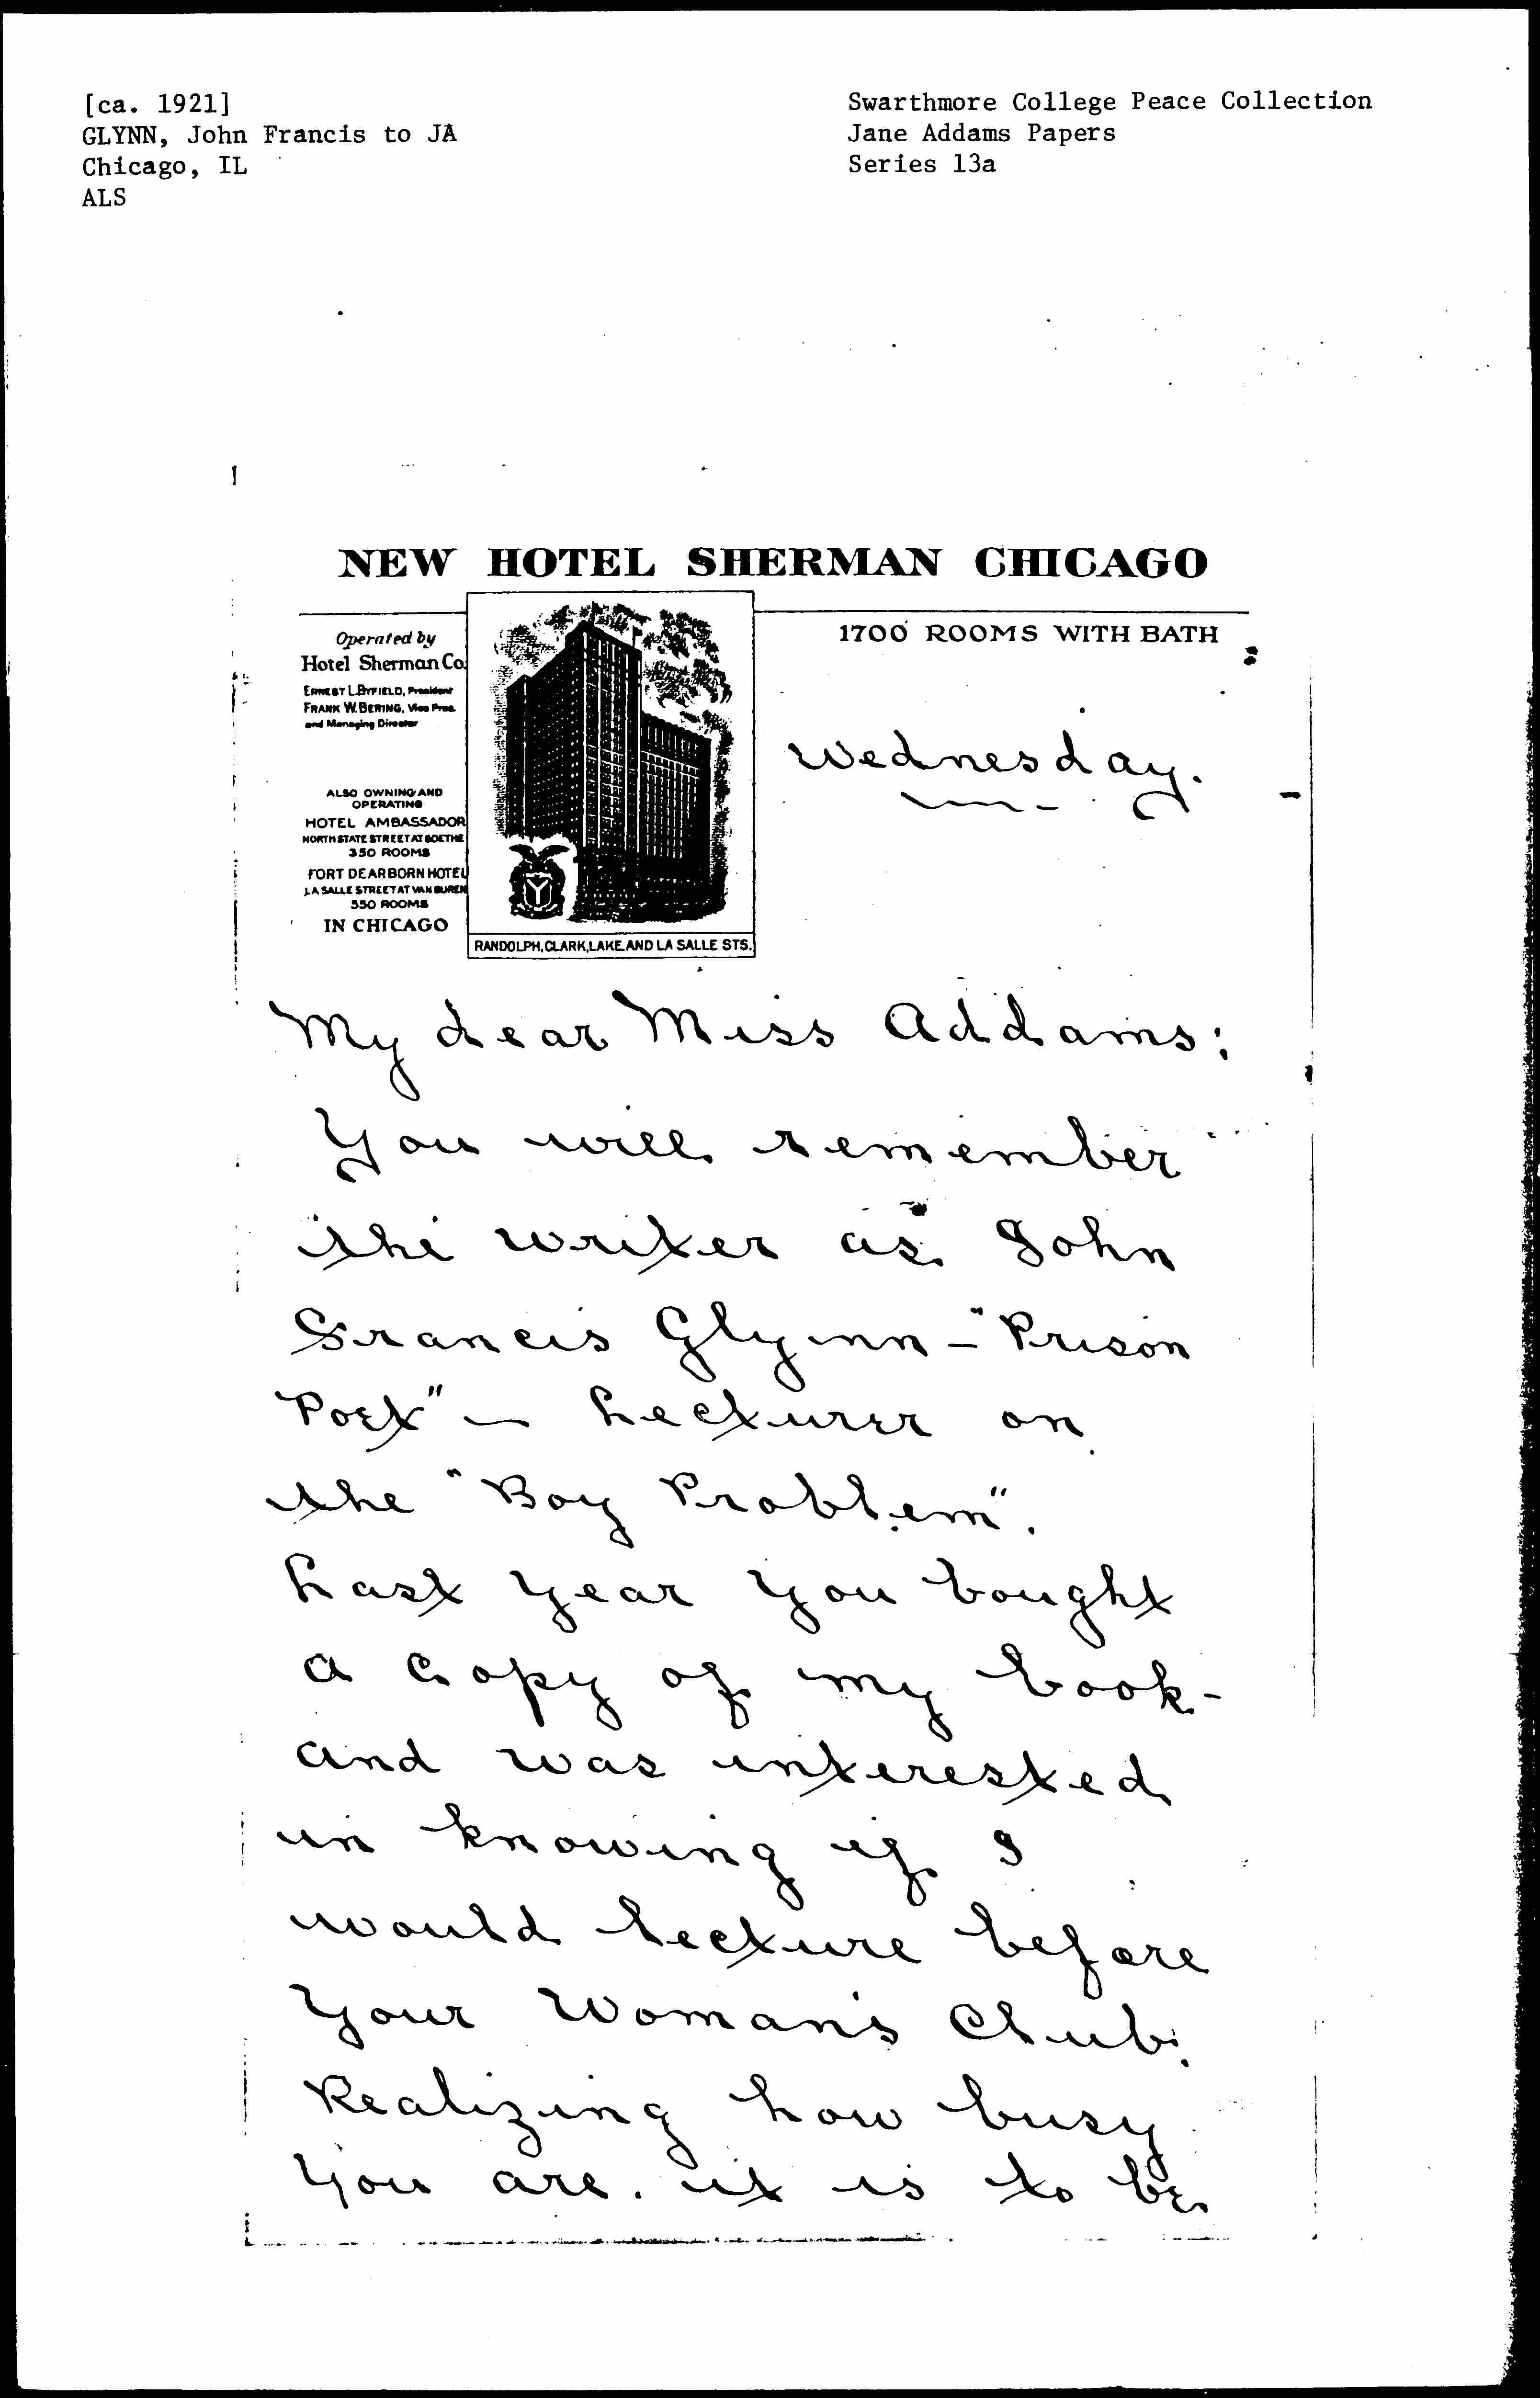 [ca. 1921]
GLYNN, John Francis to JA
Chicago, IL
ALS
Swarthmore College Peace Collection
Jane Addams Papers
Series 13a
NEW HOTEL SHERMAN CHICAGO
Operated by
Hotel Sherman Co.
ERNEST L. BYFIELD, President
FRANK W. BERING, Vice Pres.
and Managing Director
ALSO OWNING AND
OPERATING
HOTEL AMBASSADOR
NORTH STATE STREET AT GOETHE
350 ROOMS
FORT DEARBORN HOTEL
LA SALLE STREET AT VAN BUREN
550 ROOMS
IN CHICAGO
RANDOLPH, CLARK, LAKE AND LA SALLE STS.
1700 ROOMS WITH BATH
Wednesday.
My dear Miss Addams:
You will remember
the writer as John
Francis Glynn - "Prison
Poet" - Lecturer on
the "Boy Problem".
Last year you bought
a copy of my book -
and was interested
in knowing if I
would lecture before
your Woman's Club.
Realizing how busy
you are. it is to be